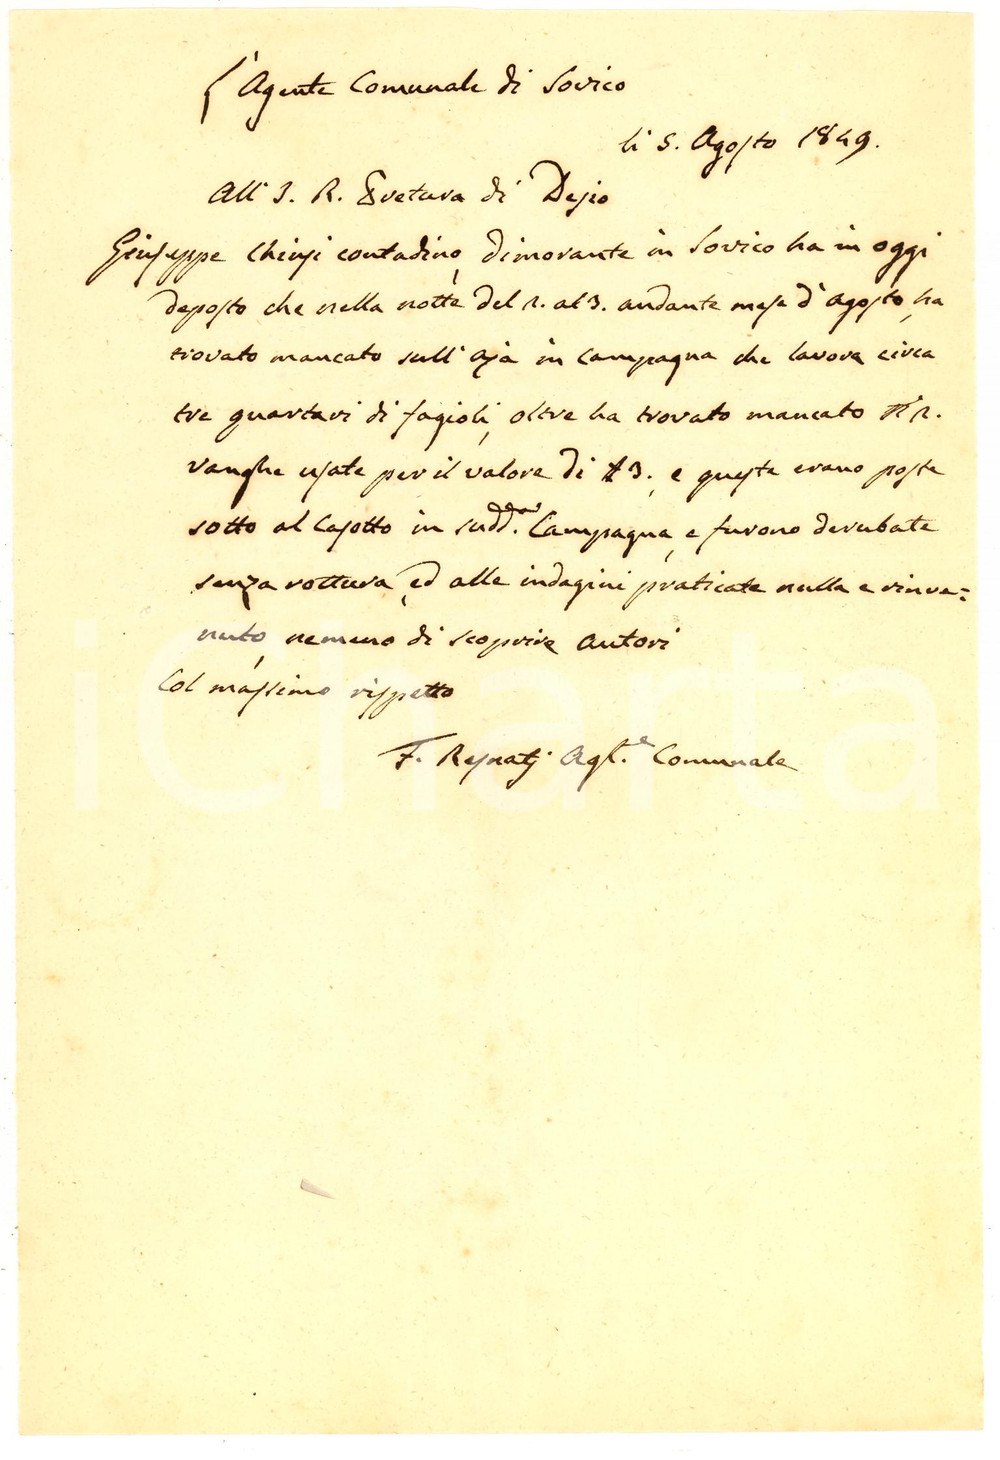 L'Agente Comunale di Sovico
li 5. Agosto 1849.
All' I. R. Pretura di Desio
Giuseppe Chiesi contadino, dimorante in Sovico ha in oggi
deposto che nella notte del 2. al 3. andante mese d'agosto, ha
trovato mancato sull' Aja in Campagna che lavora circa
tre quartari di fagioli, oltre ha trovato mancato N 2.
vanghe usate per il valore di £3., e queste erano poste
sotto al Casotto in sudd.a Campagna, e furono derubate
senza rottura, ed alle indagini praticate nulla e rinve=
nuto, nemeno di scoprire autori
Col massimo rispetto
F. Agt.e Comunale
iCharta